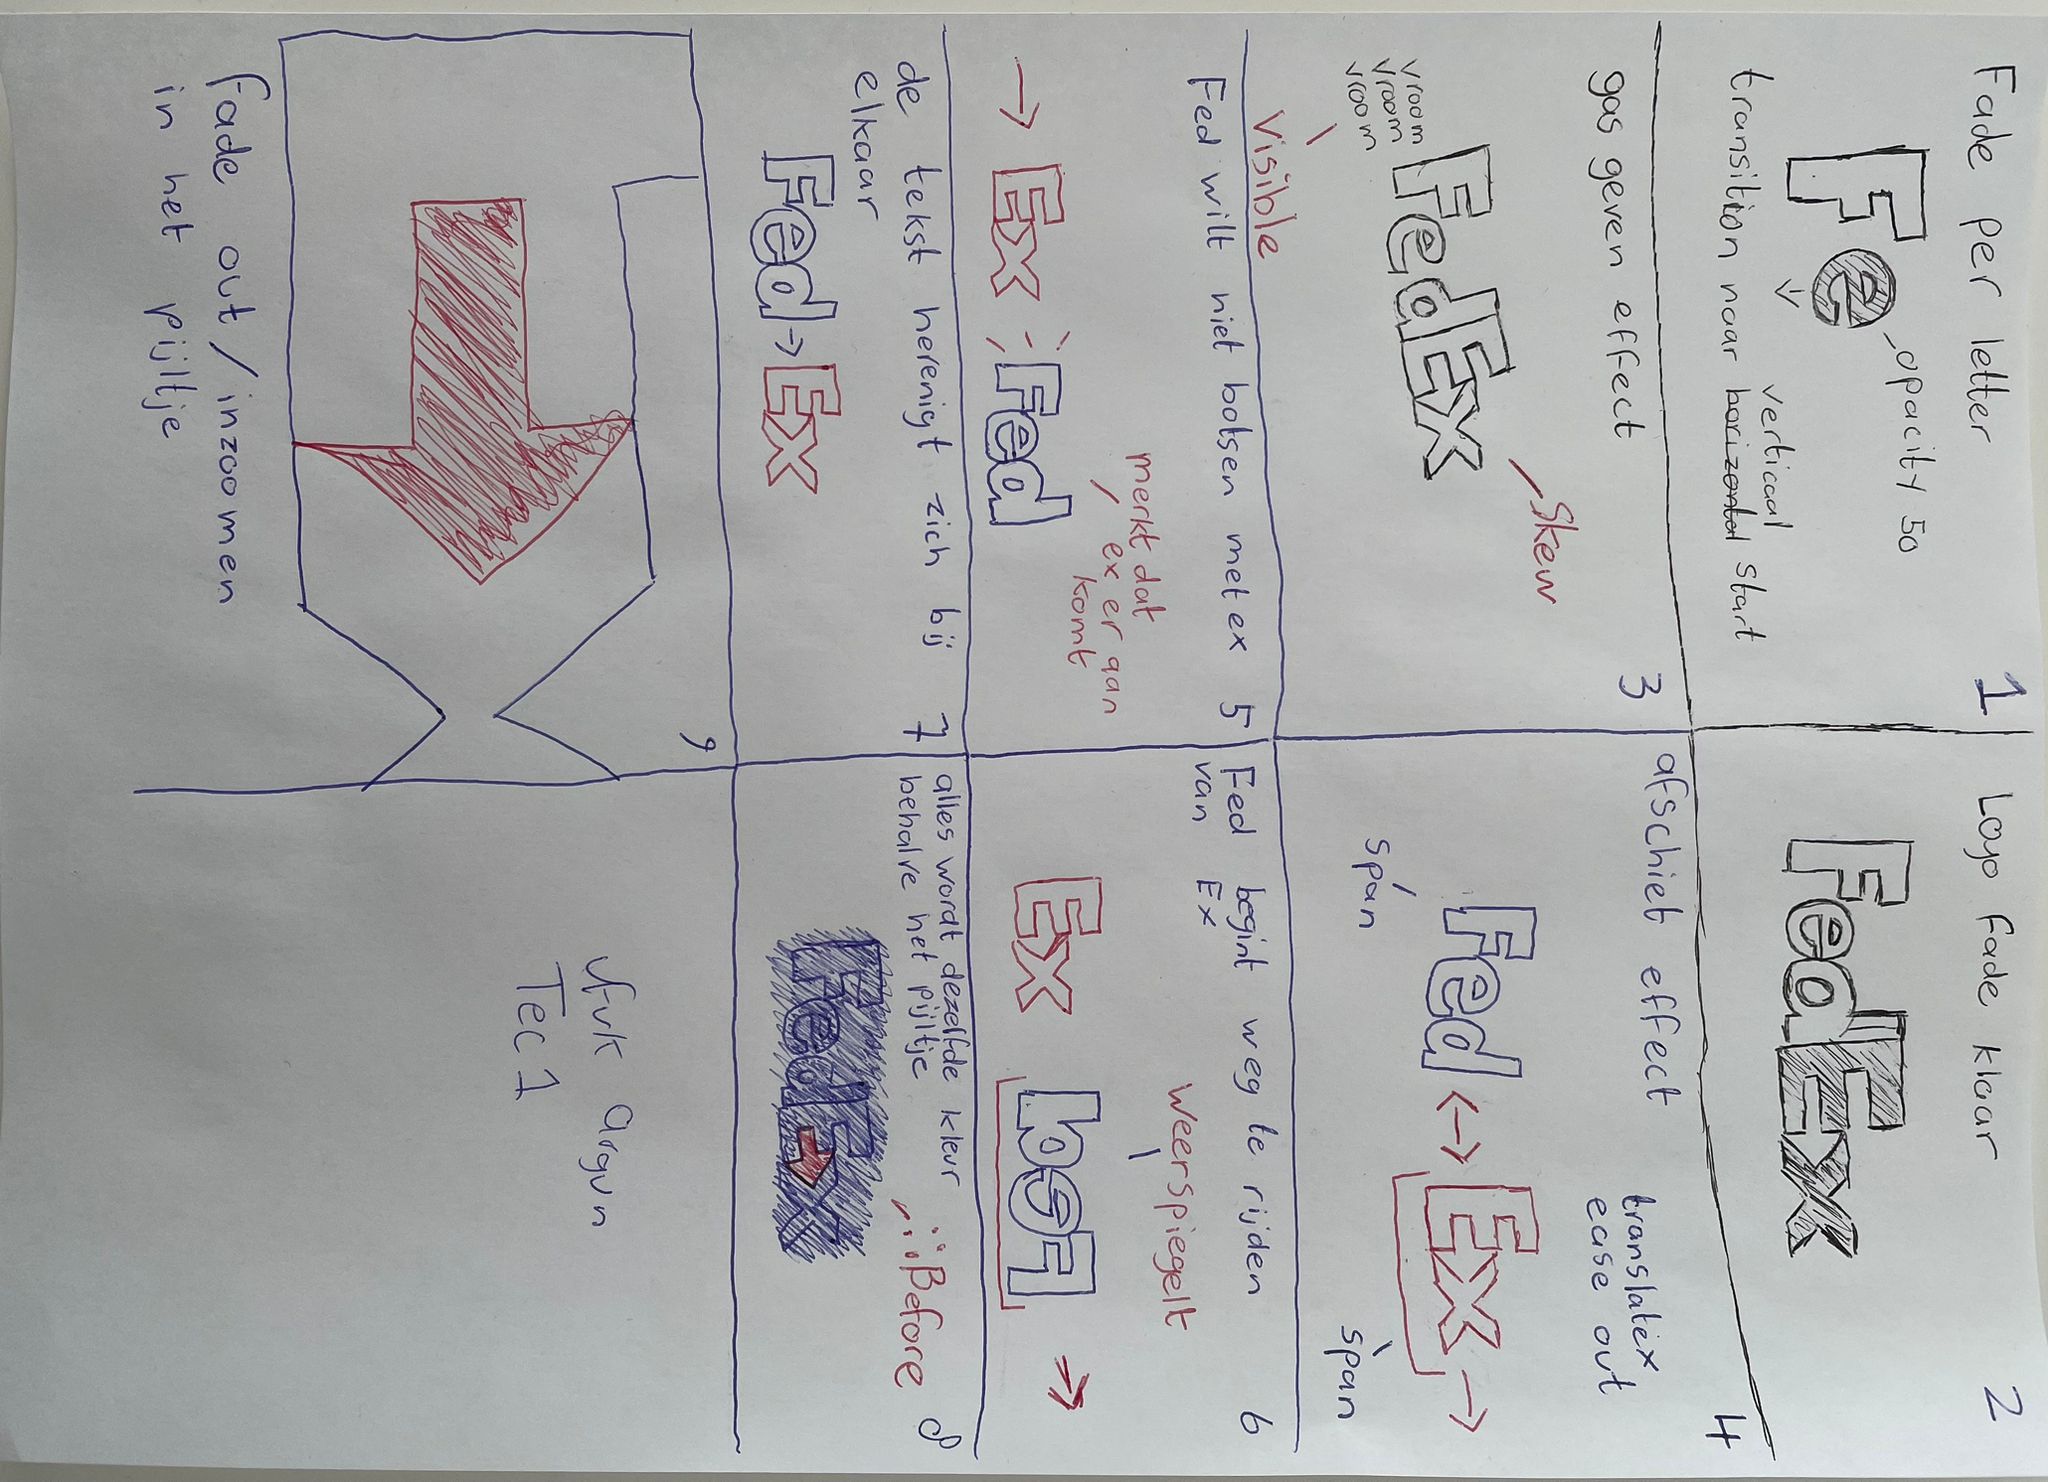 Fade per letter
1
Fe
opacity 50
verticaal
transition naar horizontal start
Logo fade klaar
2
FedEx
gas geven effect
3
vroom
vroom
vroom
FedEx
Skew
afschiet effect
4
translatex
ease out
Fed <-> Ex ->
span
span
Fed wilt niet botsen met ex
5
visible
merkt dat
ex er aan
komt
-> Ex Fed
Fed begint weg te rijden
van Ex
6
weerspiegelt
Ex Fed
de tekst herenigt zich bij
elkaar
7
Fed -> Ex
alles wordt dezelfde kleur
behalve het pijltje
8
::Before
FedEx
9
fade out / inzoomen
in het pijltje
Ufuk Argun
Tec 1